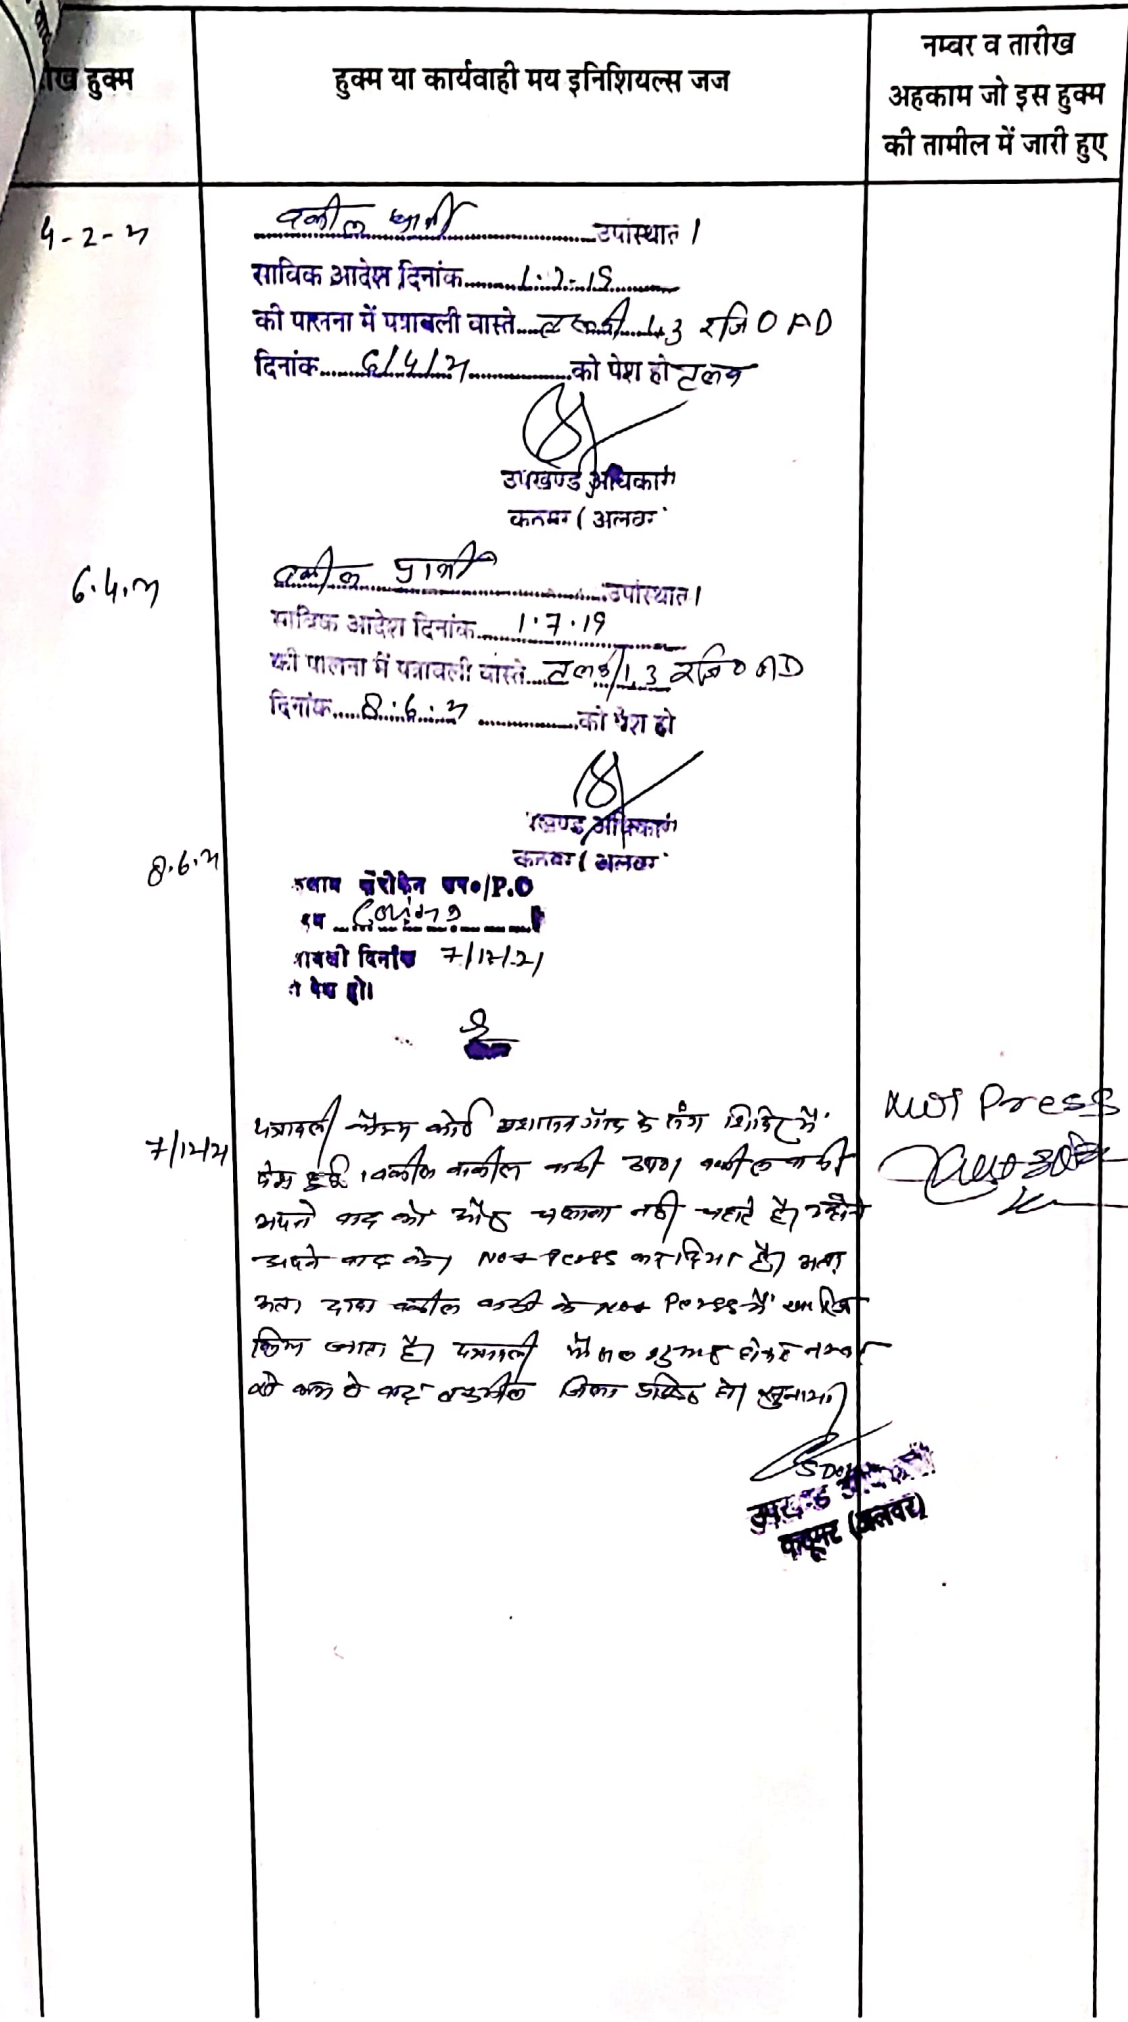 हुक्म
हुक्म या कार्यवाही मय इनिशियल्स जज
नम्बर व तारीख
अहकाम जो इस हुक्म
की तामील में जारी हुए
4-2-21
वकील प्रार्थी उपस्थित।
साविक आदेश दिनांक
की पालना में पत्रावली वास्ते रजि0 AD
दिनांक 6/4/21 को पेश हो तलब
उपखण्ड अधिकारी
कठूमर (अलवर
6.4.21
वकील प्रार्थी उपस्थित।
साविक आदेश दिनांक 1.7.19
की पालना में पत्रावली वास्ते तलबी 1,3 रजि0 AD
दिनांक 8.6.21 को पेश हो
खण्ड अधिकारी
कठूमर (अलवर
8.6.21
/P.O
दिनांक 7/12/21
पेश हो।
7/12/21
पत्रावली कैम्प कोर्ट प्रशासन गाँव के संग शिविर में
पेश हुई। वकील वादी उप0। वकील वादी
अपने वाद को चलाना नहीं चाहते है। उन्होंने
अपने वाद को Not Press कर दिया है। अतः
दावा वकील वादी के Not Press में खारिज
किया जाता है। पत्रावली फैसल शुमार होकर नम्बर
से कम हो बाद तकमील दाखिल हो। सुनाया।
Not Press
SDO
उपखण्ड अधिकारी
कठूमर (अलवर)